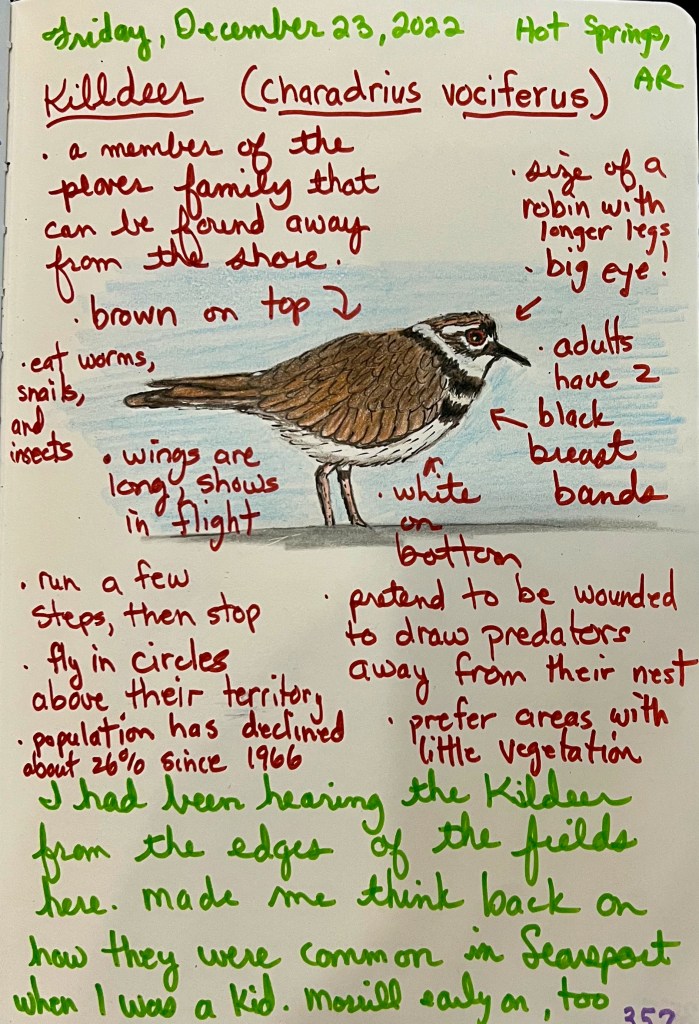 Friday, December 23, 2022
Hot Springs, AR
Killdeer (Charadrius vociferus)
· a member of the
plover family that
can be found away
from the shore.
· size of a
robin with
longer legs
· big eye!
· brown on top
· eat worms,
snails,
and
insects
· adults
have 2
black
breast
bands
· wings are
long, shows
in flight
· white
on
bottom
· run a few
steps, then stop
· fly in circles
above their territory
· population has declined
about 26% since 1966
· pretend to be wounded
to draw predators
away from their nest
· prefer areas with
little vegetation
I had been hearing the Kildeer
from the edges of the fields
here. Made me think back on
how they were common in Searsport
when I was a kid. Morrill early on, too
352